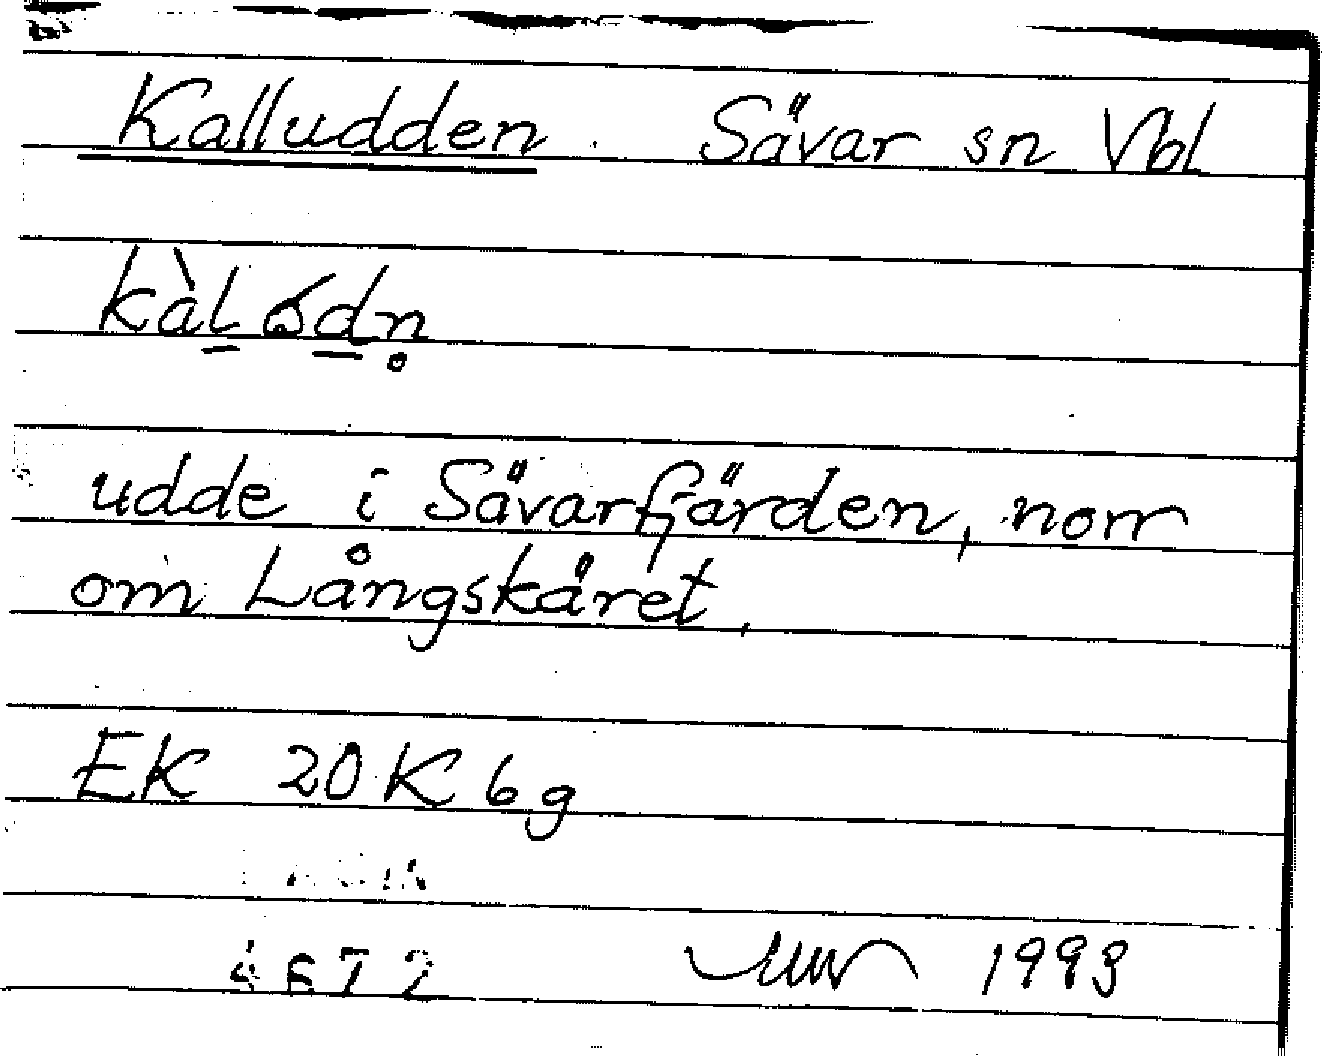 Kalludden. Sävar sn Vbl
udde i Sävarfjärden, norr
om Långskäret.
EK 20K 6g
4672 1993